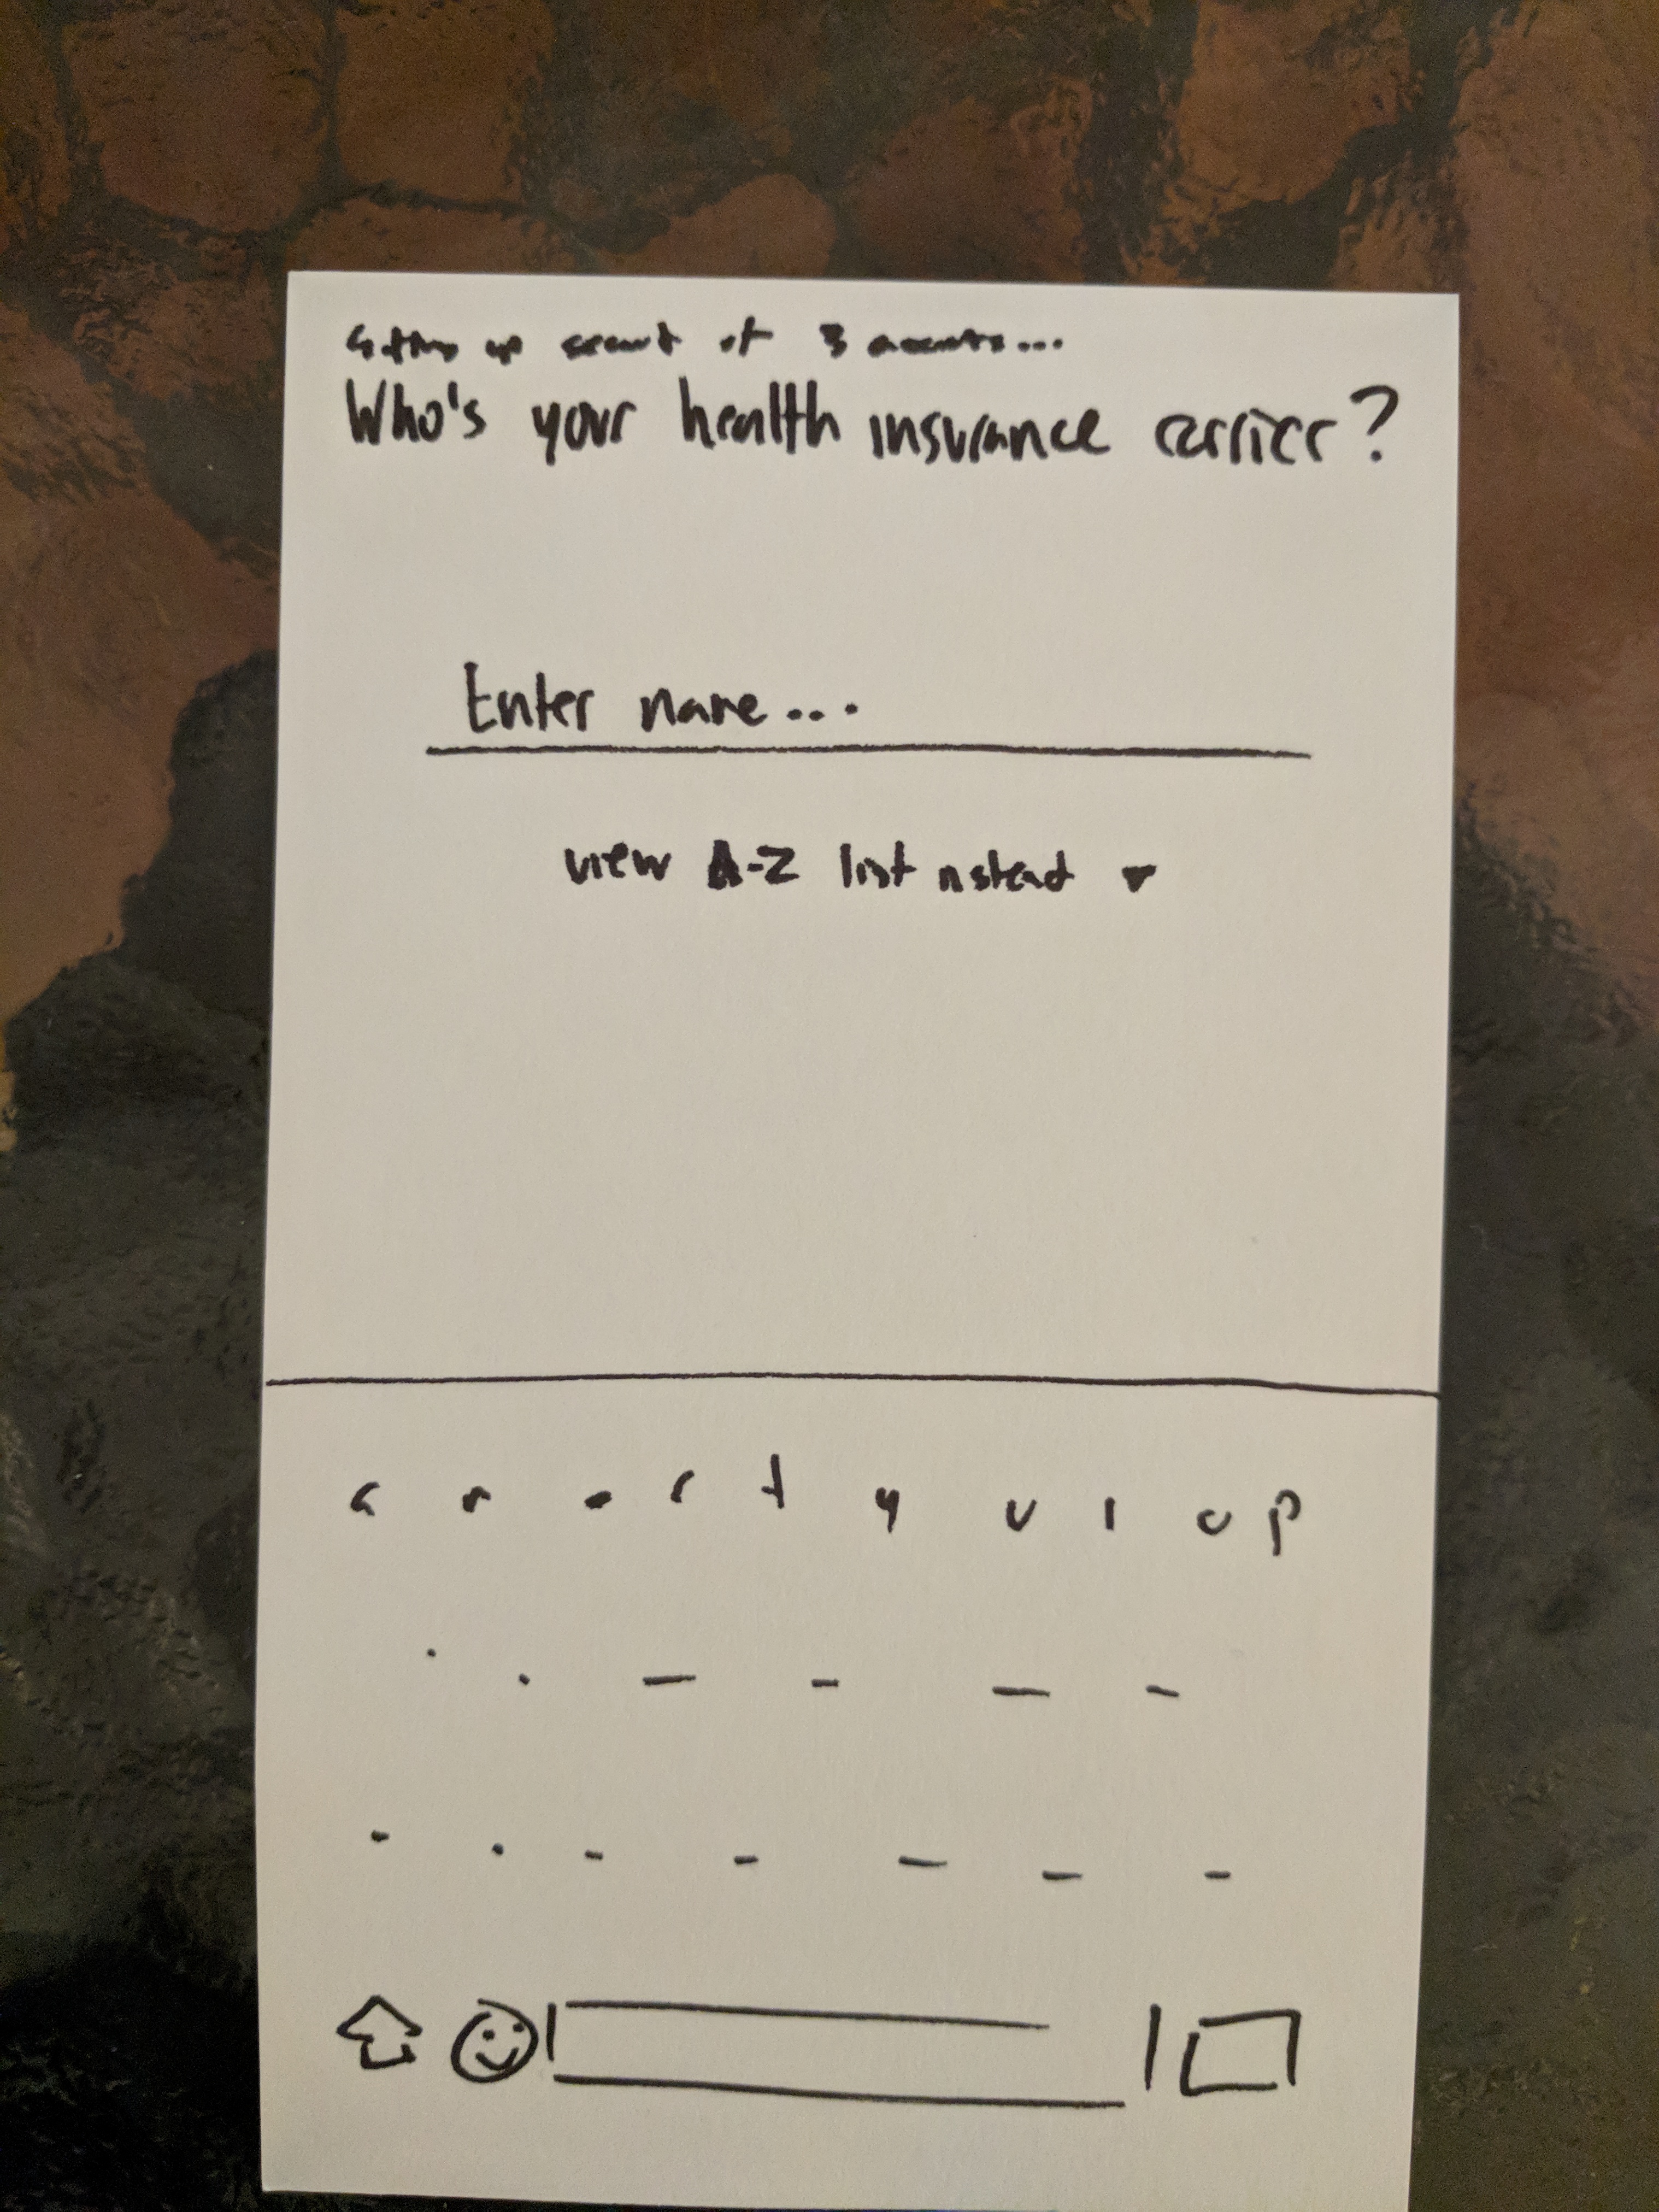 Setting up account of 3 accounts...
Who's your health insurance carrier?
Enter name...
view A-Z list instead
r t y u i o p